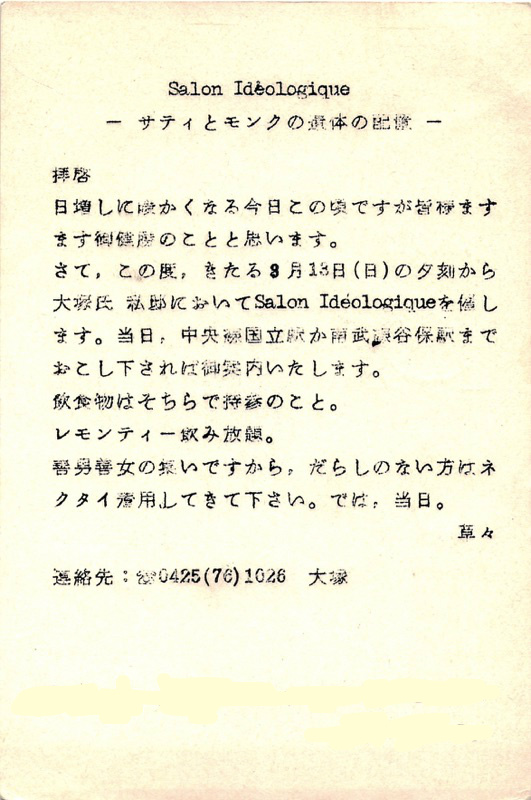 Salon Idéologique
— サティとモンクの遺体の記憶 —
拝啓
日増しに暖かくなる今日この頃ですが皆様ます
ます御健勝のことと思います。
さて，この度，きたる3月13日(日)の夕刻から
大塚氏 私邸においてSalon Idéologiqueを催し
ます。当日，中央線国立駅か南武線谷保駅まで
おこし下されば御案内いたします。
飲食物はそちらで持参のこと。
レモンティー飲み放題。
善男善女の集いですから，だらしのない方はネ
クタイ着用してきて下さい。では，当日。
草々
連絡先：☎0425(76)1026 大塚